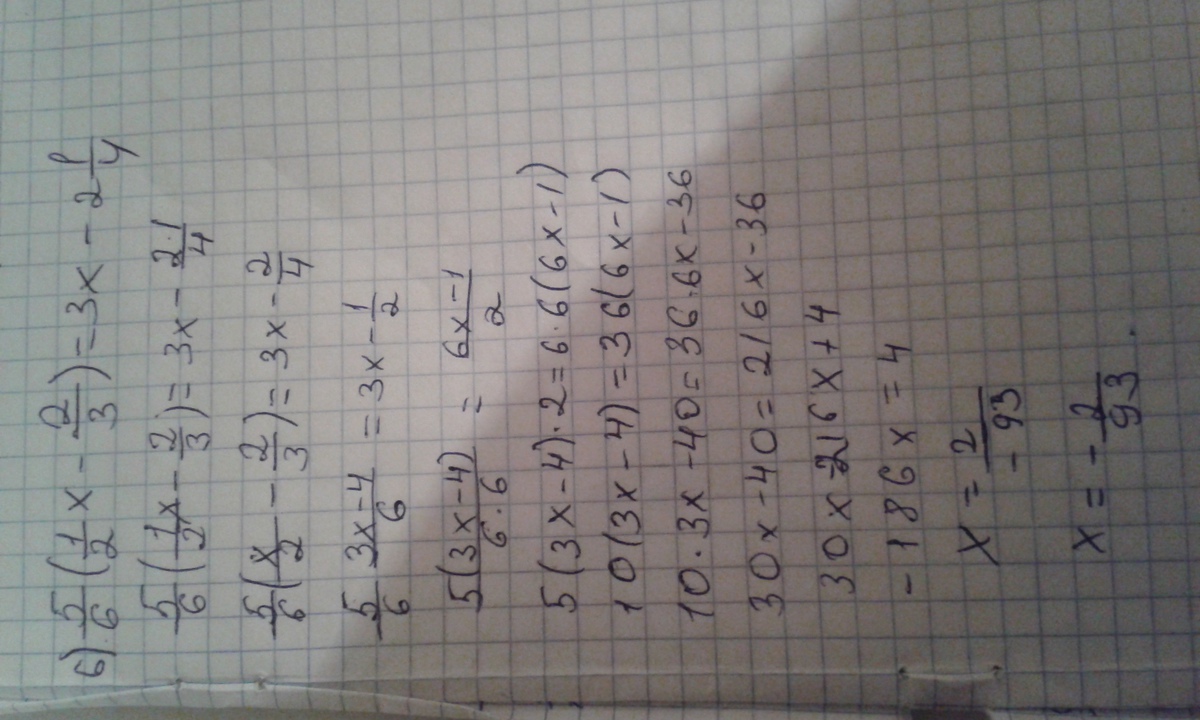 б) 5/6 (1/2 x - 2/3) = 3x - 2 1/4
5/6 (1x/2 - 2/3) = 3x - 2·1/4
5/6 (x/2 - 2/3) = 3x - 2/4
5/6 3x-4/6 = 3x - 1/2
5(3x-4)/6·6 = 6x-1/2
5(3x-4)·2=6·6(6x-1)
10(3x-4)=36(6x-1)
10·3x-40=36·6x-36
30x-40=216x-36
30x-216x+4
-186x=4
x = 2/-93
x = - 2/93.